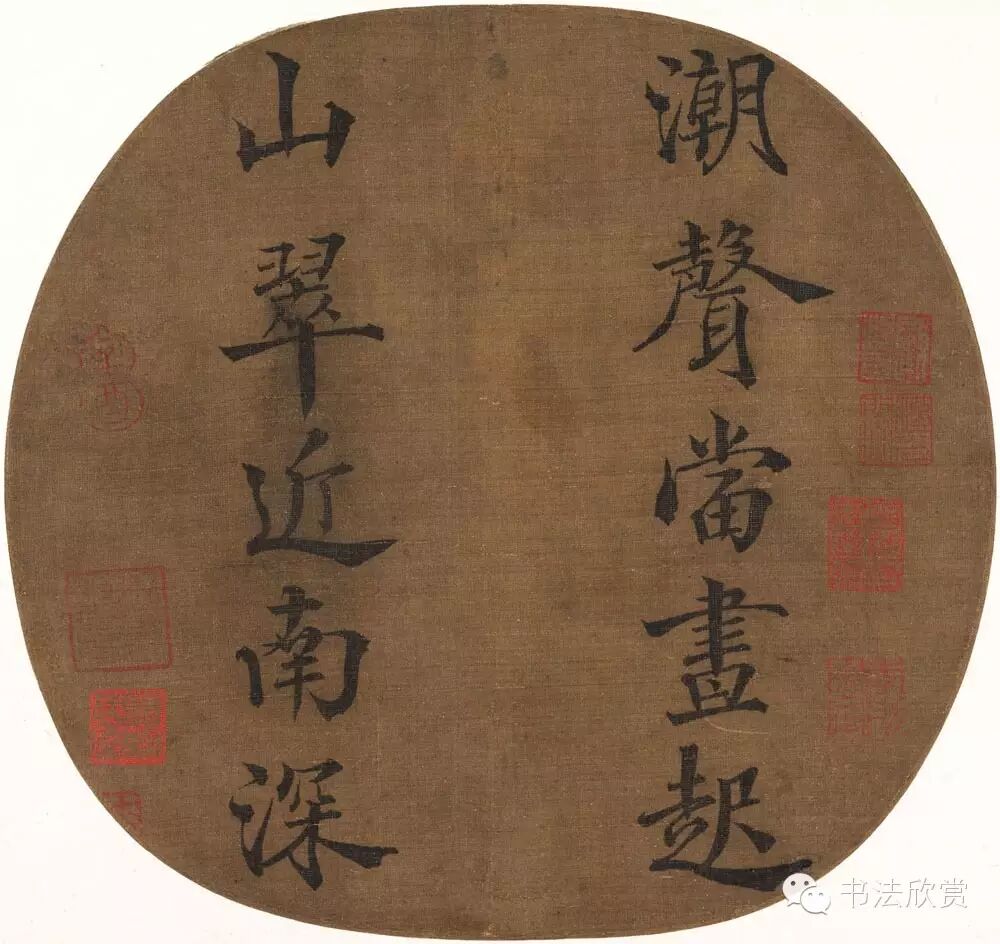 潮聲當晝起
山翠近南深
书法欣赏